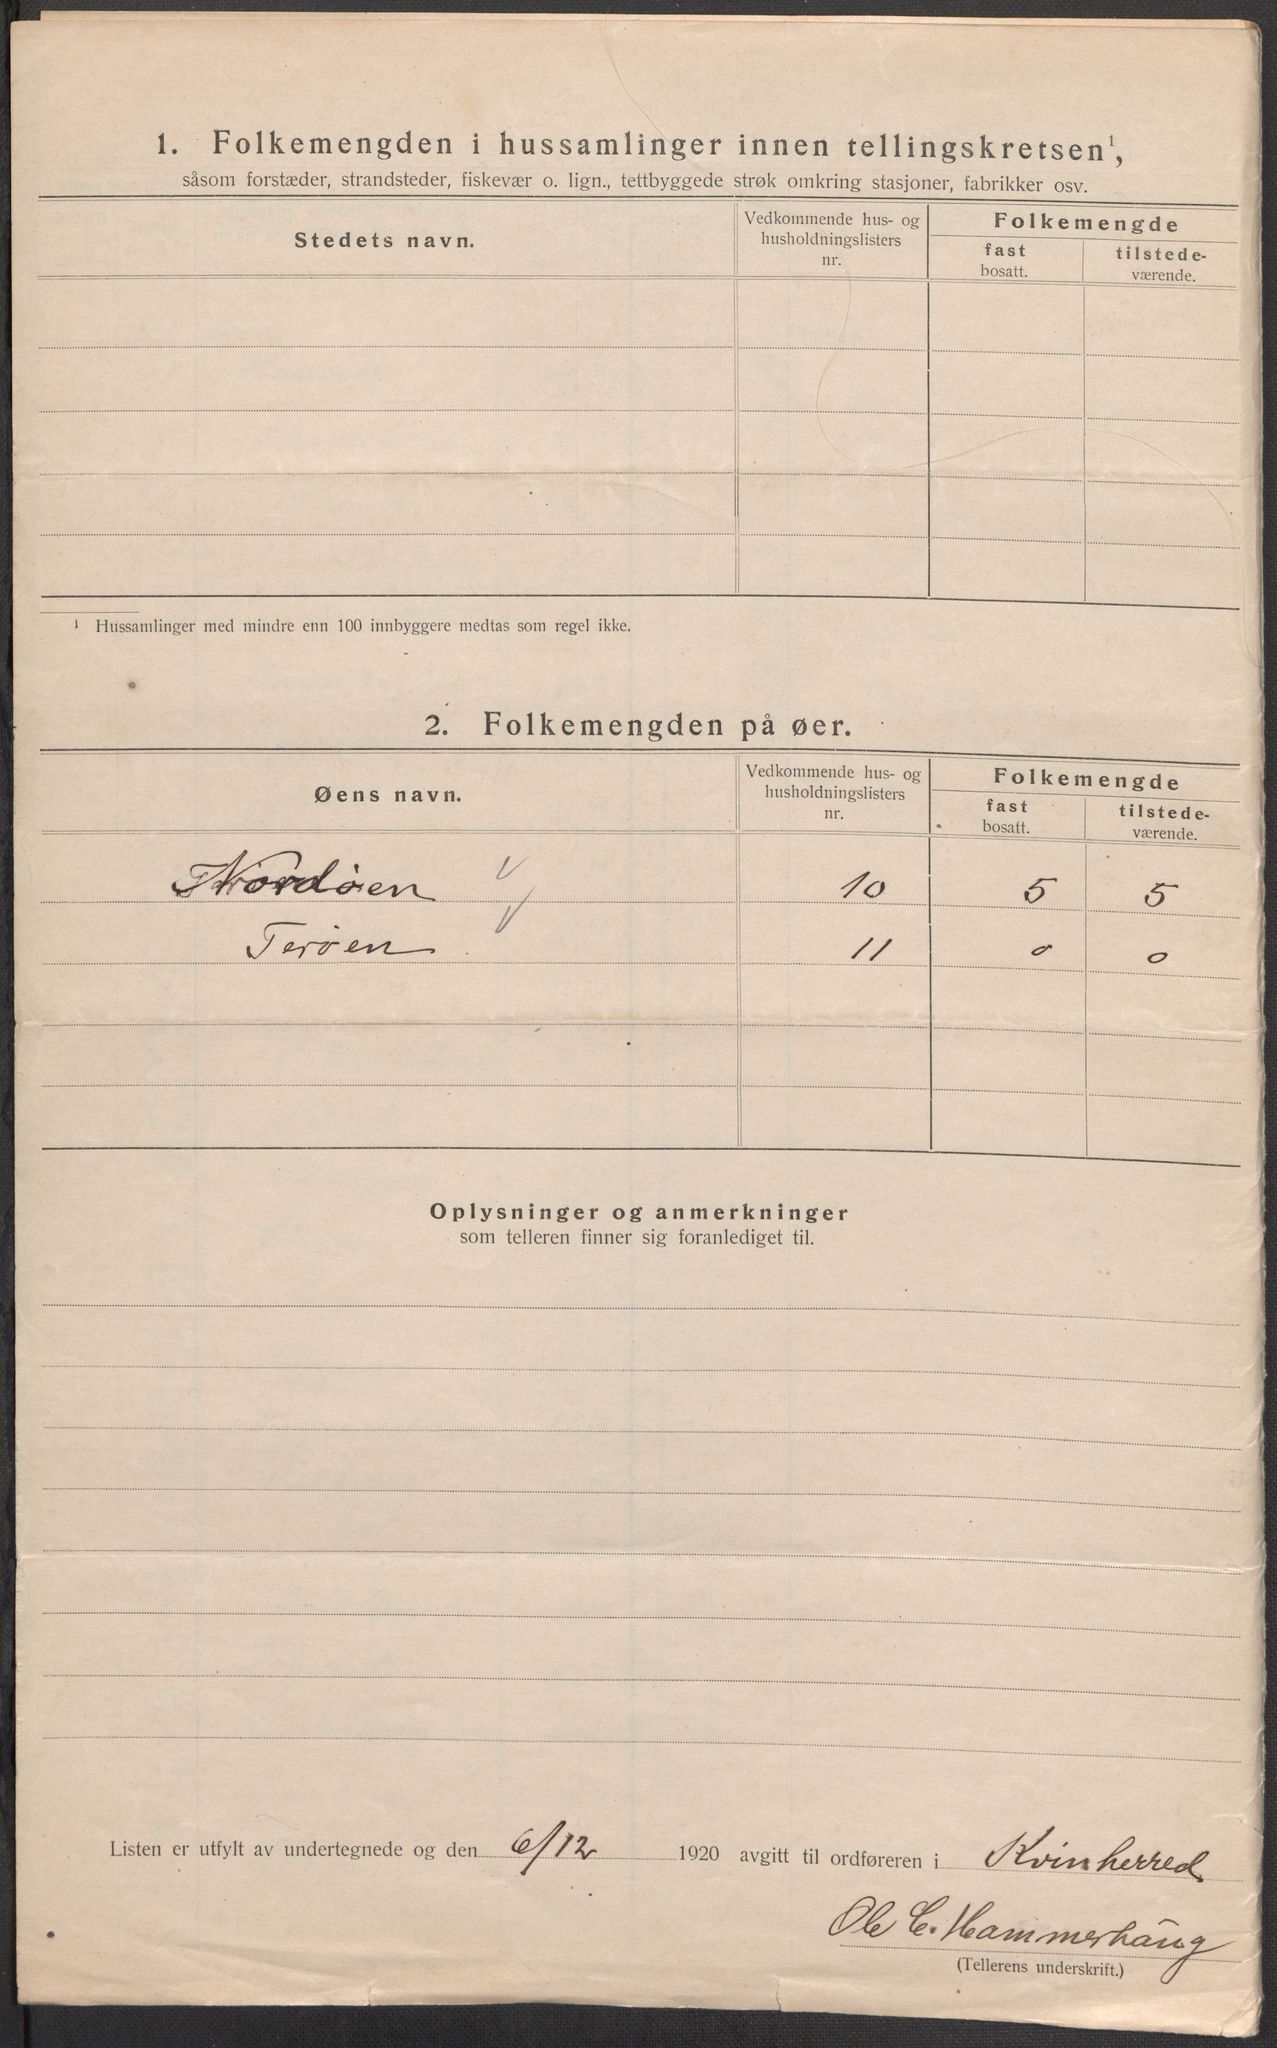 1. Folkemengden i hussamlinger innen tellingskretsen¹,
såsom forstæder, strandsteder, fiskevær o. lign., tettbyggede strøk omkring stasjoner, fabrikker osv.
Stedets navn. Vedkommende hus- og husholdningslisters nr. Folkemengde
fast bosatt. tilstede-værende.
¹ Hussamlinger med mindre enn 100 innbyggere medtas som regel ikke.
2. Folkemengden på øer.
Øens navn. Vedkommende hus- og husholdningslisters nr. Folkemengde
fast bosatt. tilstede-værende.
Nordøen 10 5 5
Terøen 11 0 0
Oplysninger og anmerkninger
som telleren finner sig foranlediget til.
Listen er utfylt av undertegnede og den 6/12 1920 avgitt til ordføreren i Kvinherred
Ole C. Hammerhaug
(Tellerens underskrift.)